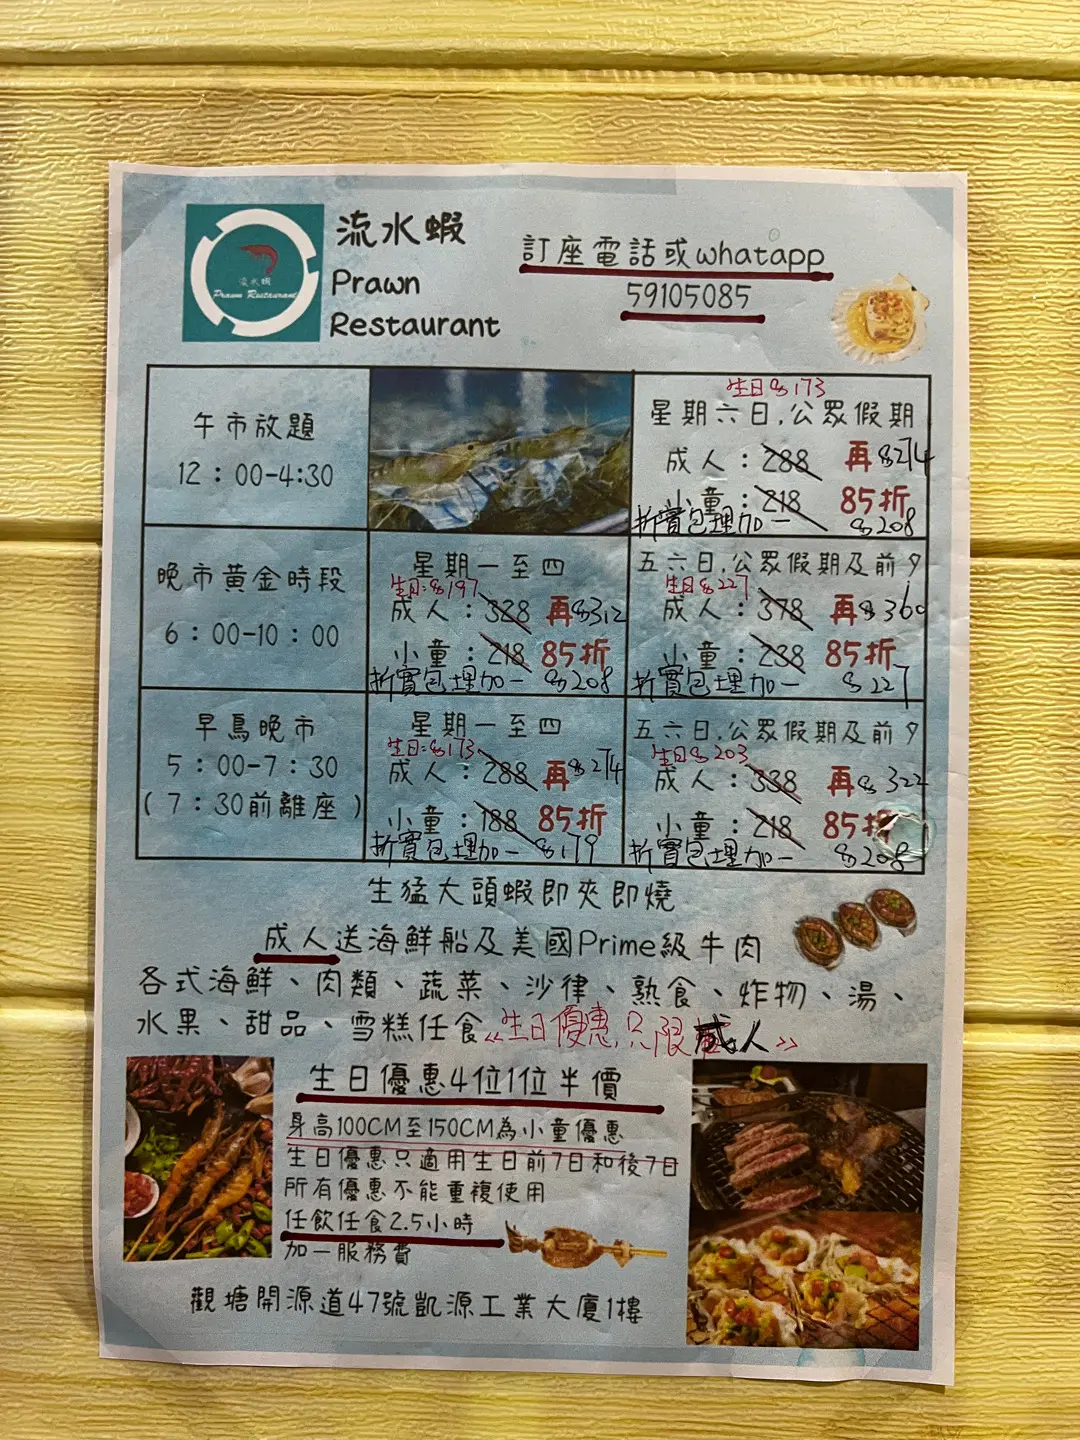 流水蝦
Prawn
Restaurant
流水蝦
Prawn Restaurant
訂座電話或whatapp
59105085
午市放題
12：00-4:30
生日$173
星期六日,公眾假期
成人：288 再 $274
小童：218 85折
折實包埋加一 $208
晚市黃金時段
6：00-10：00
星期一至四
生日:$197
成人：328 再 $312
小童：218 85折
折實包埋加一 $208
五六日,公眾假期及前夕
生日$227
成人：378 再 $360
小童：238 85折
折實包埋加一 $227
早鳥晚市
5：00-7：30
(7：30前離座)
星期一至四
生日:$173
成人：288 再 $274
小童：188 85折
折實包埋加一 $179
五六日,公眾假期及前夕
生日$203
成人：338 再 $322
小童：218 85折
折實包埋加一 $208
生猛大頭蝦即夾即燒
成人送海鮮船及美國Prime級牛肉
各式海鮮、肉類、蔬菜、沙律、熟食、炸物、湯、
水果、甜品、雪糕任食 《生日優惠,只限成人》
生日優惠4位1位半價
身高100CM至150CM為小童優惠
生日優惠只適用生日前7日和後7日
所有優惠不能重複使用
任飲任食2.5小時
加一服務費
觀塘開源道47號凱源工業大廈1樓